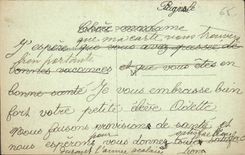 Chère madame
que ma carte vous trouvera
J'espère que vous avez passée de
bien portante
bonnes vacances et que vous êtes en
bonne santé Je vous embrasse bien
fort votre petite élève Odette
Nous faisons provisions de santé et
nous espérons vous donner toute
durant l'année scolaire